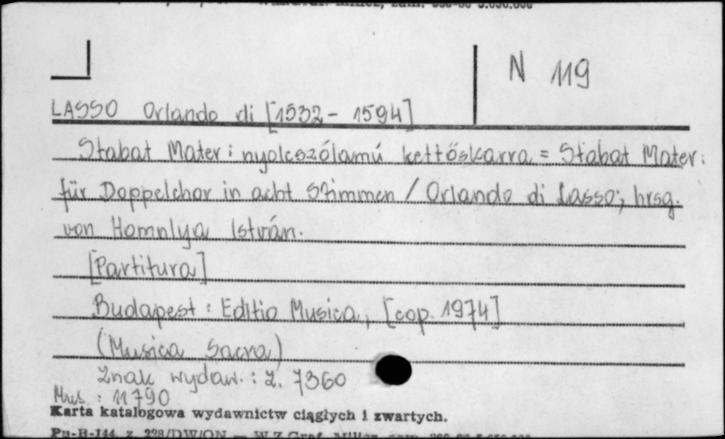 N 119
LASSO Orlando di [1532 - 1594]
Stabat Mater : nyolcszólamú kettőskarra = Stabat Mater :
für Doppelchor in acht Stimmen / Orlando di Lasso ; hrsg.
von Homnlya István.
[Partitura]
Budapest : Editio Musica, [cop. 1974]
(Musica Sacra)
Znak wydaw. : Z. 7360
Mus. : 11790
Karta katalogowa wydawnictw ciągłych i zwartych.
Pu-B-144 z. 228/DW/ON — W.Z.Graf.